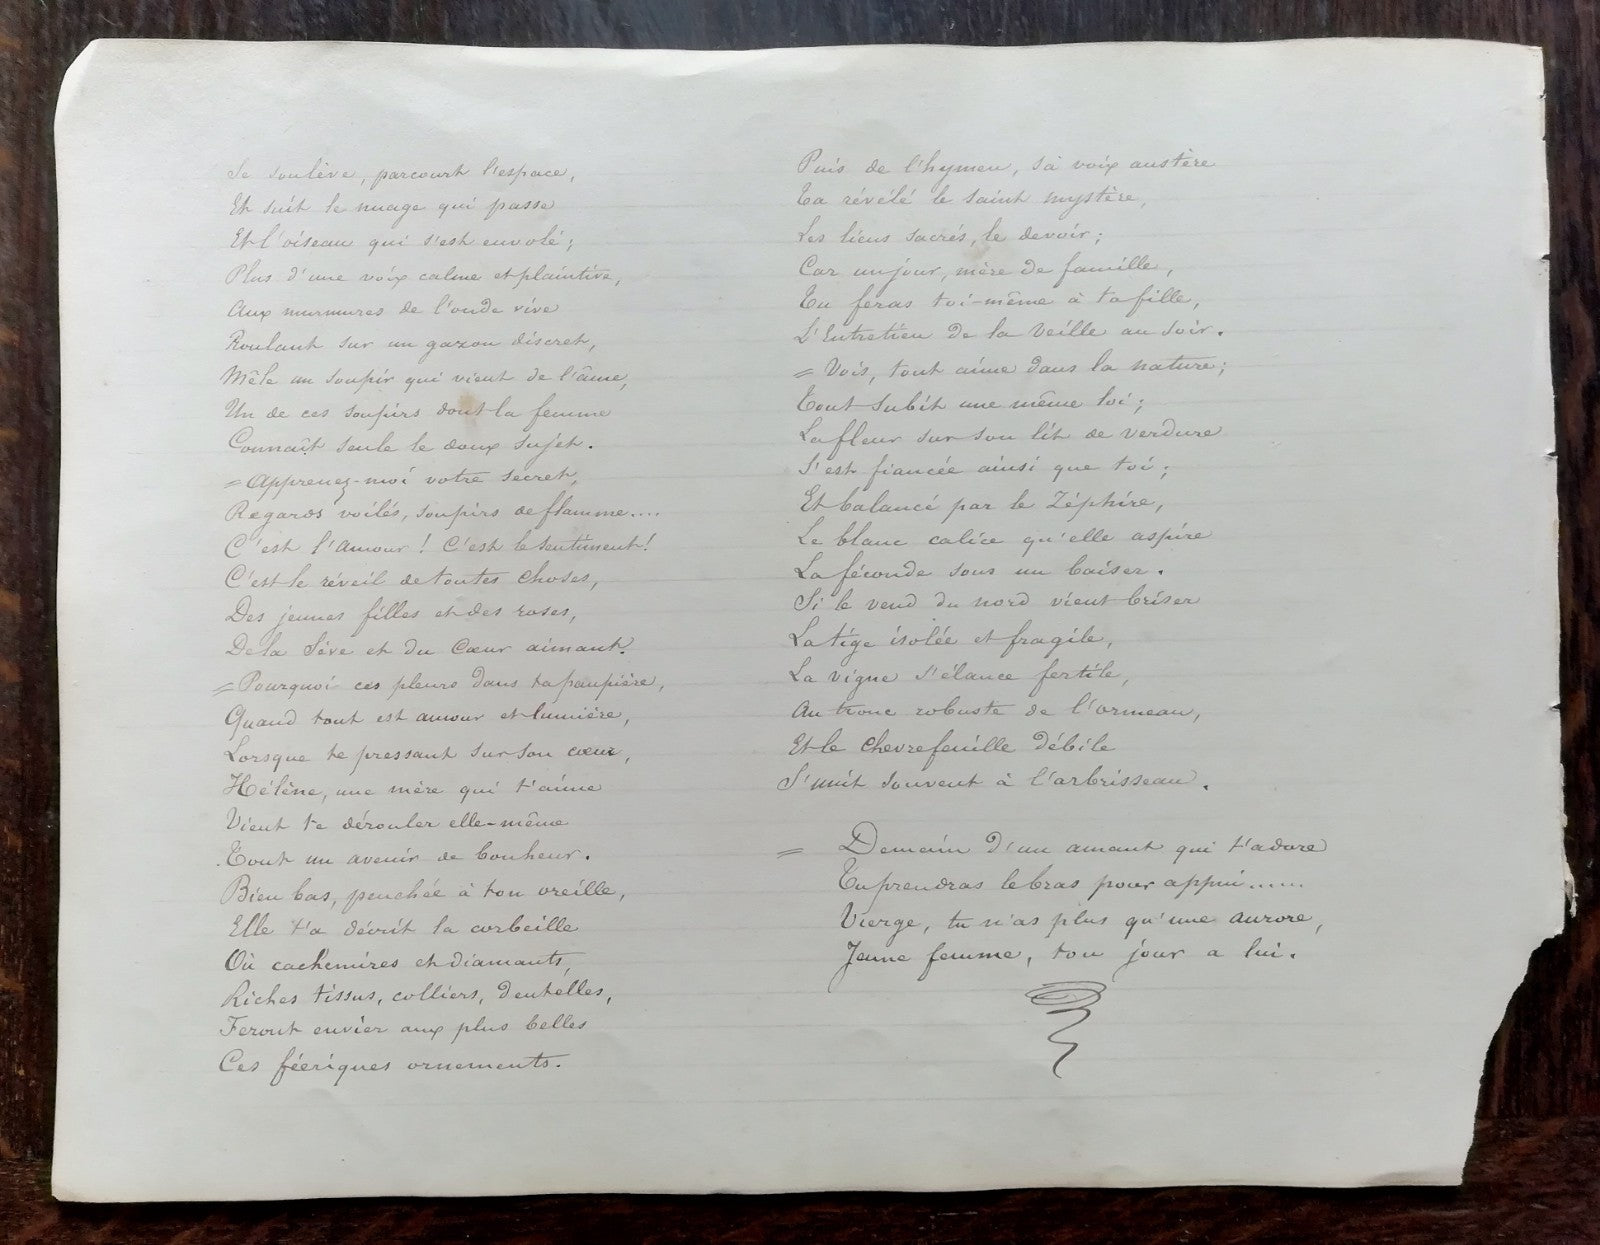 Se soulève, parcourt l'espace,
Et suit le nuage qui passe
Et l'oiseau qui s'est envolé;
Plus d'une voix calme et plaintive,
Aux murmures de l'onde vive
Roulant sur un gazon discret,
Mêle un soupir qui vient de l'âme,
Un de ces soupirs dont la femme
Connaît seule le doux sujet.
= Apprenez-moi votre secret,
Regards voilés, soupirs de flamme....
C'est l'Amour ! C'est le sentiment !
C'est le réveil de toutes choses,
Des jeunes filles et des roses,
De la Sève et du Cœur aimant.
= Pourquoi ces pleurs dans ta paupière,
Quand tout est amour et lumière,
Lorsque te pressant sur son cœur,
Hélène, une mère qui t'aime
Vient te dérouler elle-même
Tout un avenir de bonheur.
Bien bas, penchée à ton oreille,
Elle t'a décrit la corbeille
Où cachemires et diamants,
Riches tissus, colliers, dentelles,
Feront envier aux plus belles
Ces féeriques ornements.
Puis de l'hymen, sa voix austère
Ta révélé le saint mystère,
Les liens sacrés, le devoir;
Car un jour, mère de famille,
Tu feras toi-même à ta fille,
L'Entretien de la Veille au Soir.
= Vois, tout aime dans la nature;
Tout subit une même loi;
La fleur sur son lit de verdure
S'est fiancée ainsi que toi;
Et balancé par le Zéphire,
Le blanc calice qu'elle aspire
La féconde sous un baiser.
Si le vend du nord vient briser
La tige isolée et fragile,
La vigne s'élance fertile,
Au tronc robuste de l'ormeau,
Et le chevrefeuille débile
S'unit souvent à l'arbrisseau.
= Demain d'un amant qui t'adore
Tu prendras le bras pour appui......
Vierge, tu n'as plus qu'une aurore,
Jeune femme, ton jour a lui.